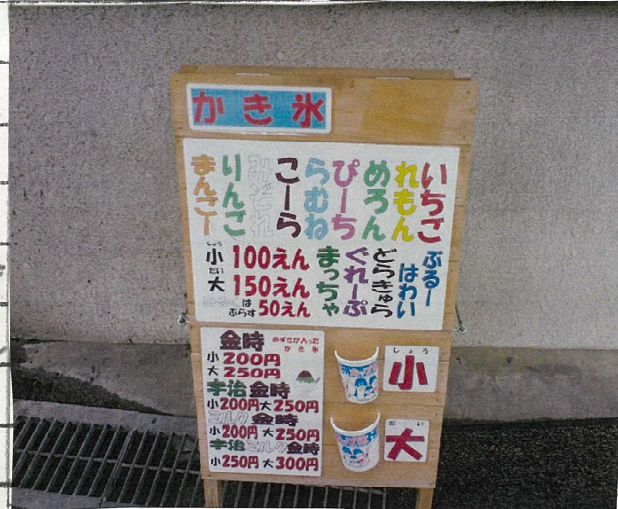 かき氷
いちご
れもん
めろん
ぴーち
らむね
こーら
みぞれ
りんご
まんごー
ぶるー
はわい
どらきゅら
ぐれーぷ
まっちゃ
しょう
小 100えん
だい
大 150えん
は
ぷらす 50えん
金時 あずきが入った
かき氷
小 200円
大 250円
宇治金時
小200円 大250円
ミルク金時
小200円 大250円
宇治ミルク金時
小250円 大300円
しょう
小
だい
大